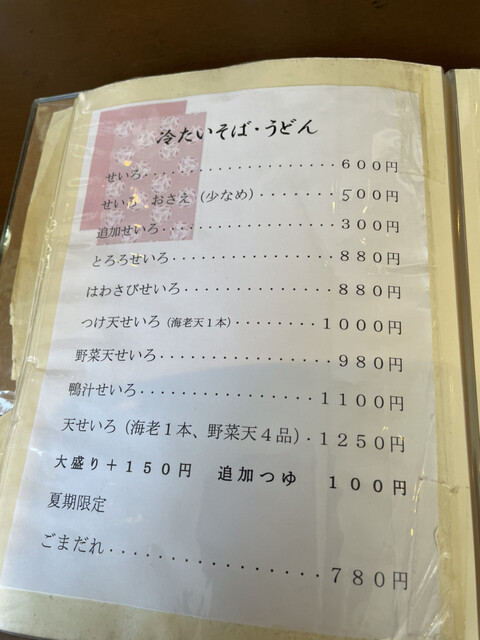 冷たいそば・うどん
せいろ・・・・・・・・・・・・・・・・・・・・・600円
せいろ おさえ（少なめ）・・・・・・・500円
追加せいろ・・・・・・・・・・・・・・・・・300円
とろろせいろ・・・・・・・・・・・・・・・880円
はわさびせいろ・・・・・・・・・・・・・880円
つけ天せいろ（海老天1本）・・・・・・・・1000円
野菜天せいろ・・・・・・・・・・・・・・980円
鴨汁せいろ・・・・・・・・・・・・・・1100円
天せいろ（海老1本、野菜天4品）・1250円
大盛り＋150円 追加つゆ 100円
夏期限定
ごまだれ・・・・・・・・・・・・・・・・・780円